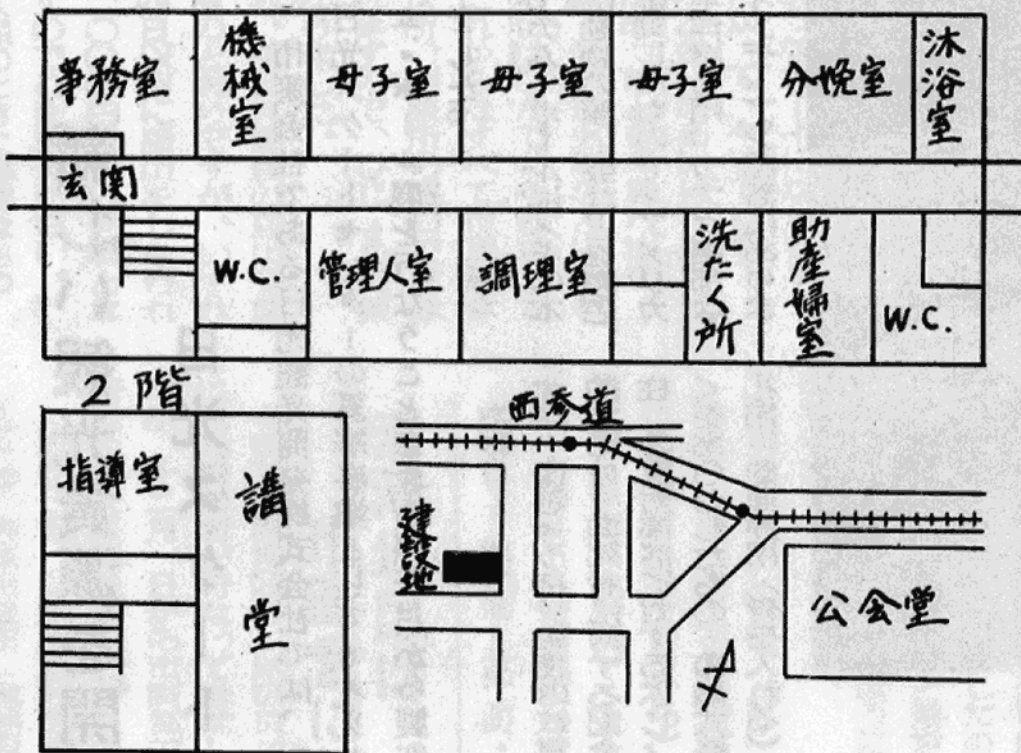 事務室
機械室
母子室
母子室
母子室
分娩室
沐浴室
玄関
W.C.
管理人室
調理室
洗たく所
助産婦室
W.C.
2階
指導室
講堂
西参道
建設地
公会堂